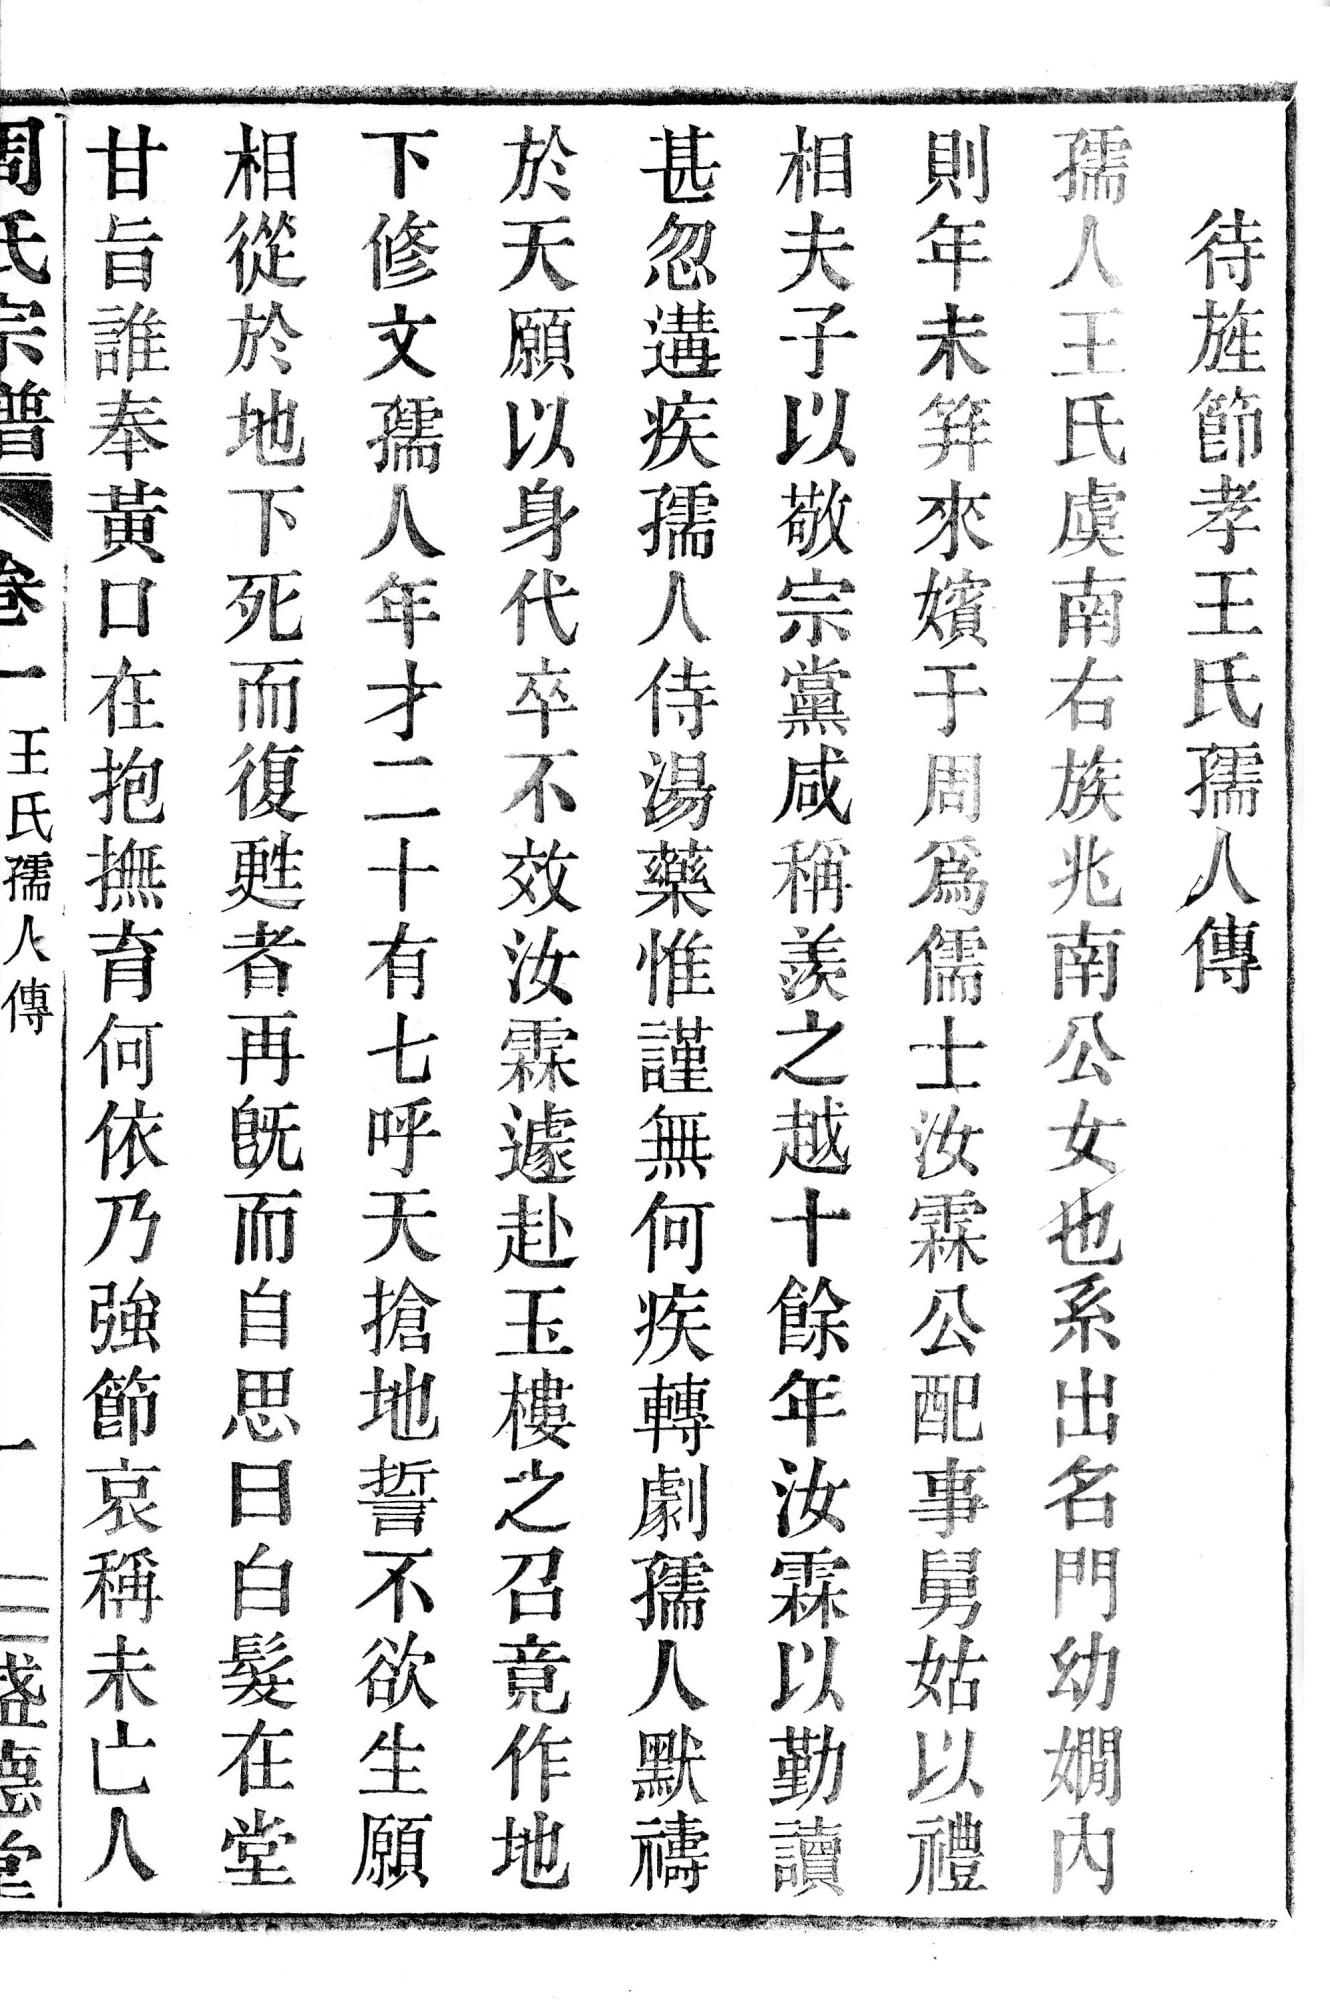 待旌節孝王氏孺人傳
孺人王氏虞南右族兆南公女也系出名門幼嫻內
則年未笄來嬪于周爲儒士汝霖公配事舅姑以禮
相夫子以敬宗黨咸稱羨之越十餘年汝霖以勤讀
甚忽遘疾孺人侍湯藥惟謹無何疾轉劇孺人默禱
於天願以身代卒不效汝霖遽赴玉樓之召竟作地
下修文孺人年才二十有七呼天搶地誓不欲生願
相從於地下死而復甦者再旣而自思曰白髮在堂
甘旨誰奉黃口在抱撫育何依乃強節哀稱未亡人
周氏宗譜 卷一 王氏孺人傳 一 盛德堂